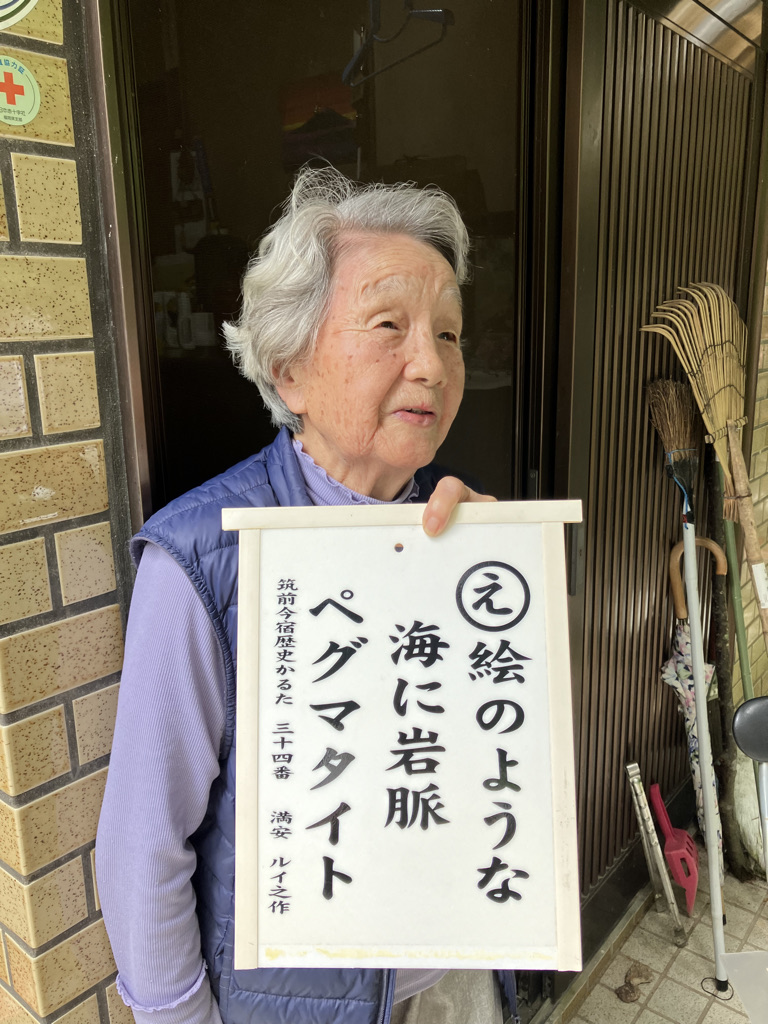 え 絵のような
海に岩脈
ペグマタイト
筑前今宿歴史かるた 三十四番 満安 ルイ之作